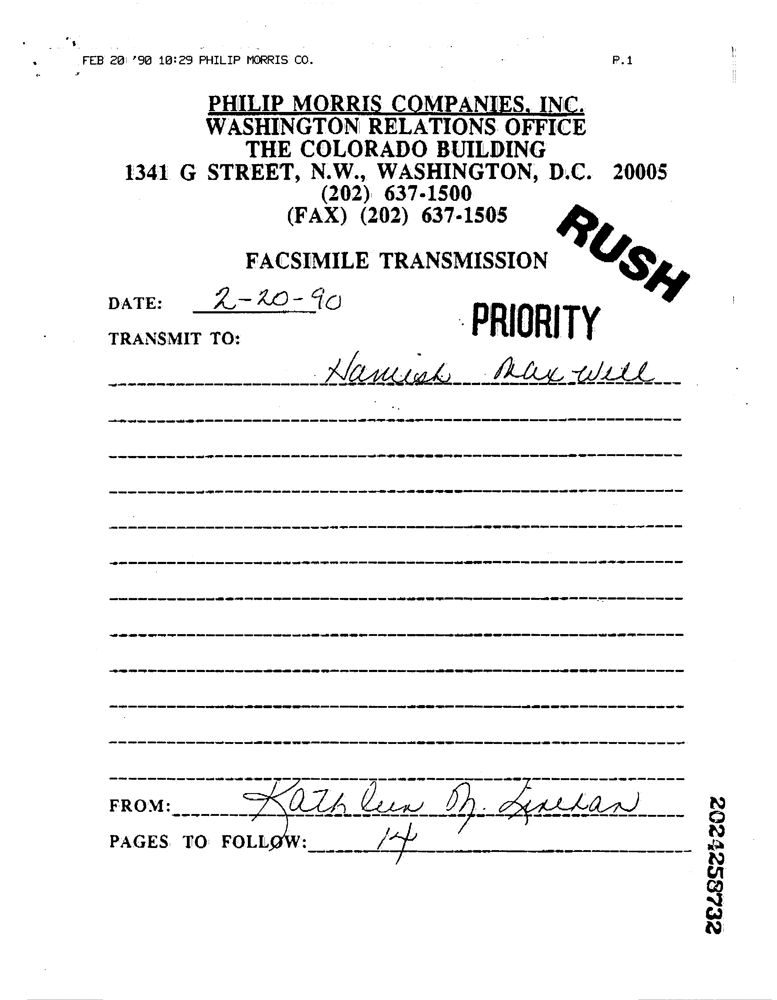 FEB 20 '90 10:29 PHILIP MORRIS CO. P.1
PHILIP MORRIS COMPANIES, INC.
WASHINGTON RELATIONS OFFICE
THE COLORADO BUILDING
1341 G STREET, N.W., WASHINGTON, D.C. 20005
(202) 637-1500
(FAX) (202) 637-1505
RUSH
FACSIMILE TRANSMISSION
DATE: 2-20-90
PRIORITY
TRANSMIT TO:
Hamish Maxwell
FROM: Kathleen M. Linehan
PAGES TO FOLLOW: 14
2024258732